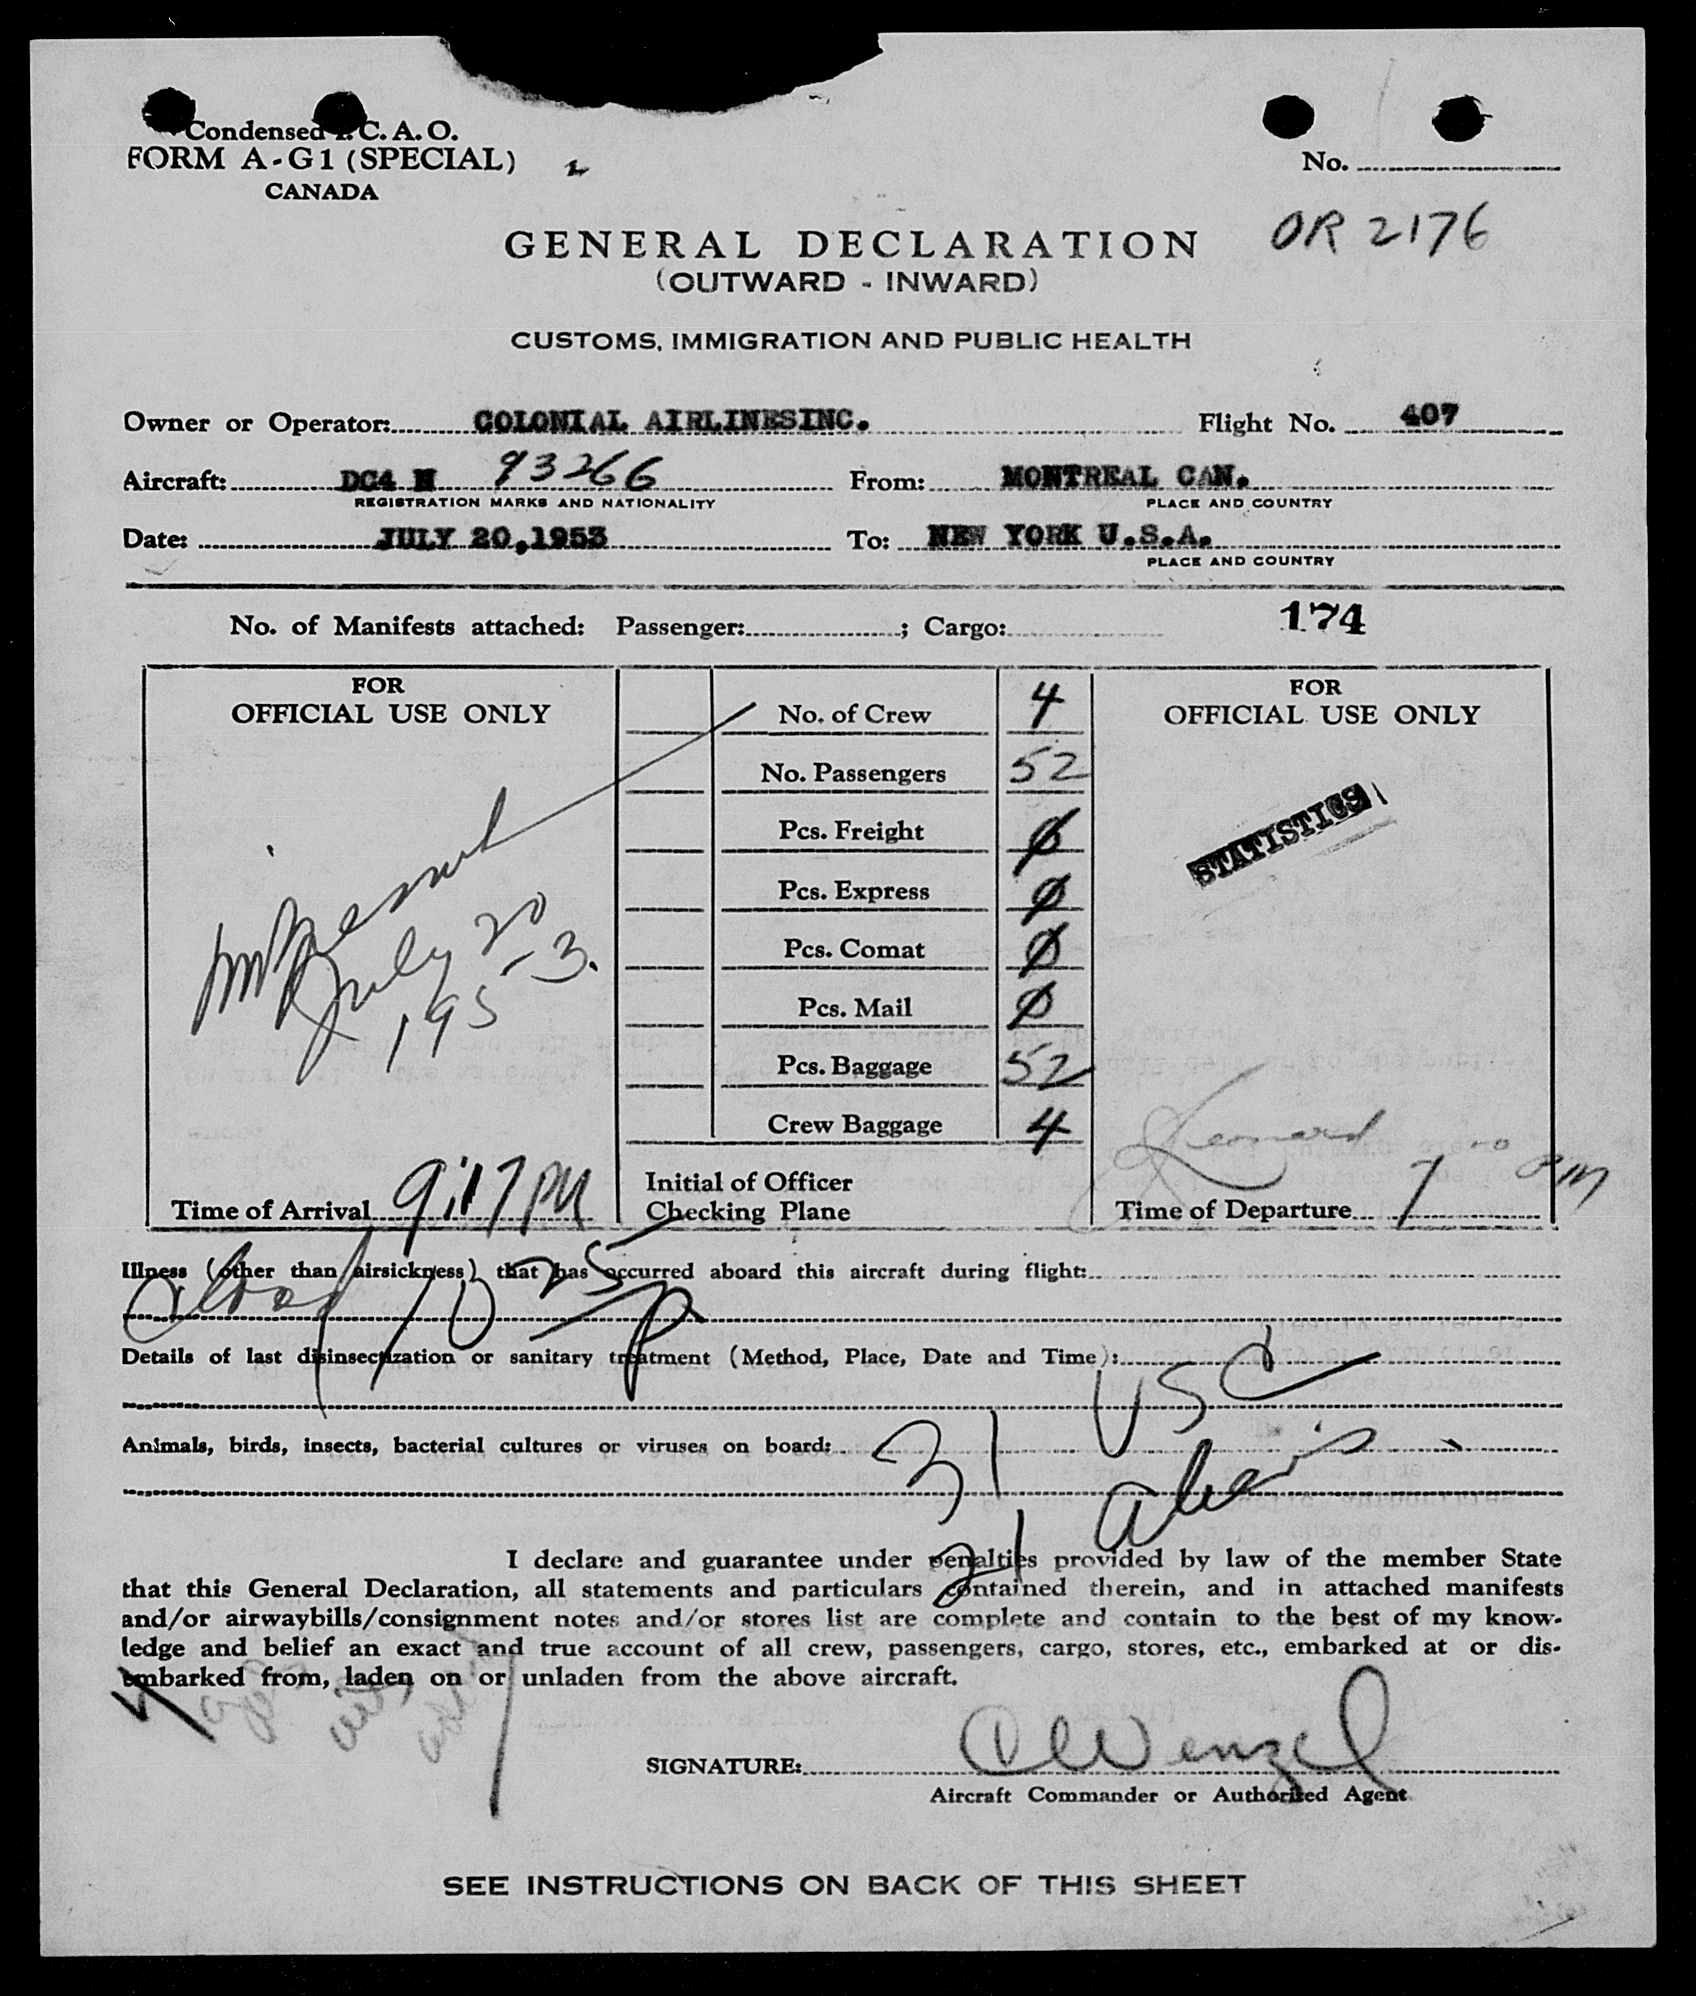 Condensed I.C.A.O.
FORM A-G1 (SPECIAL)
CANADA
No.
OR 2176
GENERAL DECLARATION
(OUTWARD - INWARD)
CUSTOMS, IMMIGRATION AND PUBLIC HEALTH
Owner or Operator: COLONIAL AIRLINESINC. Flight No. 407
Aircraft: DC4 N 93266 From: MONTREAL CAN.
REGISTRATION MARKS AND NATIONALITY PLACE AND COUNTRY
Date: JULY 20,1953 To: NEW YORK U.S.A.
PLACE AND COUNTRY
No. of Manifests attached: Passenger: ; Cargo: 174
FOR
OFFICIAL USE ONLY
July 20
195-3.
Time of Arrival 9:17 PM
No. of Crew 4
No. Passengers 52
Pcs. Freight Ø
Pcs. Express Ø
Pcs. Comat Ø
Pcs. Mail Ø
Pcs. Baggage 52
Crew Baggage 4
Initial of Officer
Checking Plane
FOR
OFFICIAL USE ONLY
STATISTICS
Leonard
Time of Departure 7 00 PM
Illness (other than airsickness) that has occurred aboard this aircraft during flight:
10 25 P
Details of last disinsectization or sanitary treatment (Method, Place, Date and Time):
31 USC
Animals, birds, insects, bacterial cultures or viruses on board:
21 aliens
I declare and guarantee under penalties provided by law of the member State
that this General Declaration, all statements and particulars contained therein, and in attached manifests
and/or airwaybills/consignment notes and/or stores list are complete and contain to the best of my know-
ledge and belief an exact and true account of all crew, passengers, cargo, stores, etc., embarked at or dis-
embarked from, laden on or unladen from the above aircraft.
SIGNATURE: C W Wenzel
Aircraft Commander or Authorized Agent
SEE INSTRUCTIONS ON BACK OF THIS SHEET